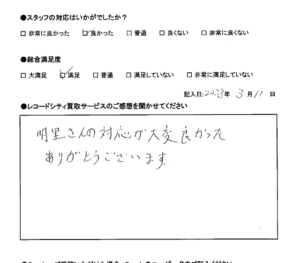 ●スタッフの対応はいかがでしたか?
□ 非常に良かった ☑ 良かった □ 普通 □ 良くない □ 非常に良くない
●総合満足度
□ 大満足 ☑ 満足 □ 普通 □ 満足していない □ 非常に満足していない
記入日:2023年 3月11日
●レコードシティ買取サービスのご感想を聞かせてください
明里さんの対応が大変良かった
ありがとうございます